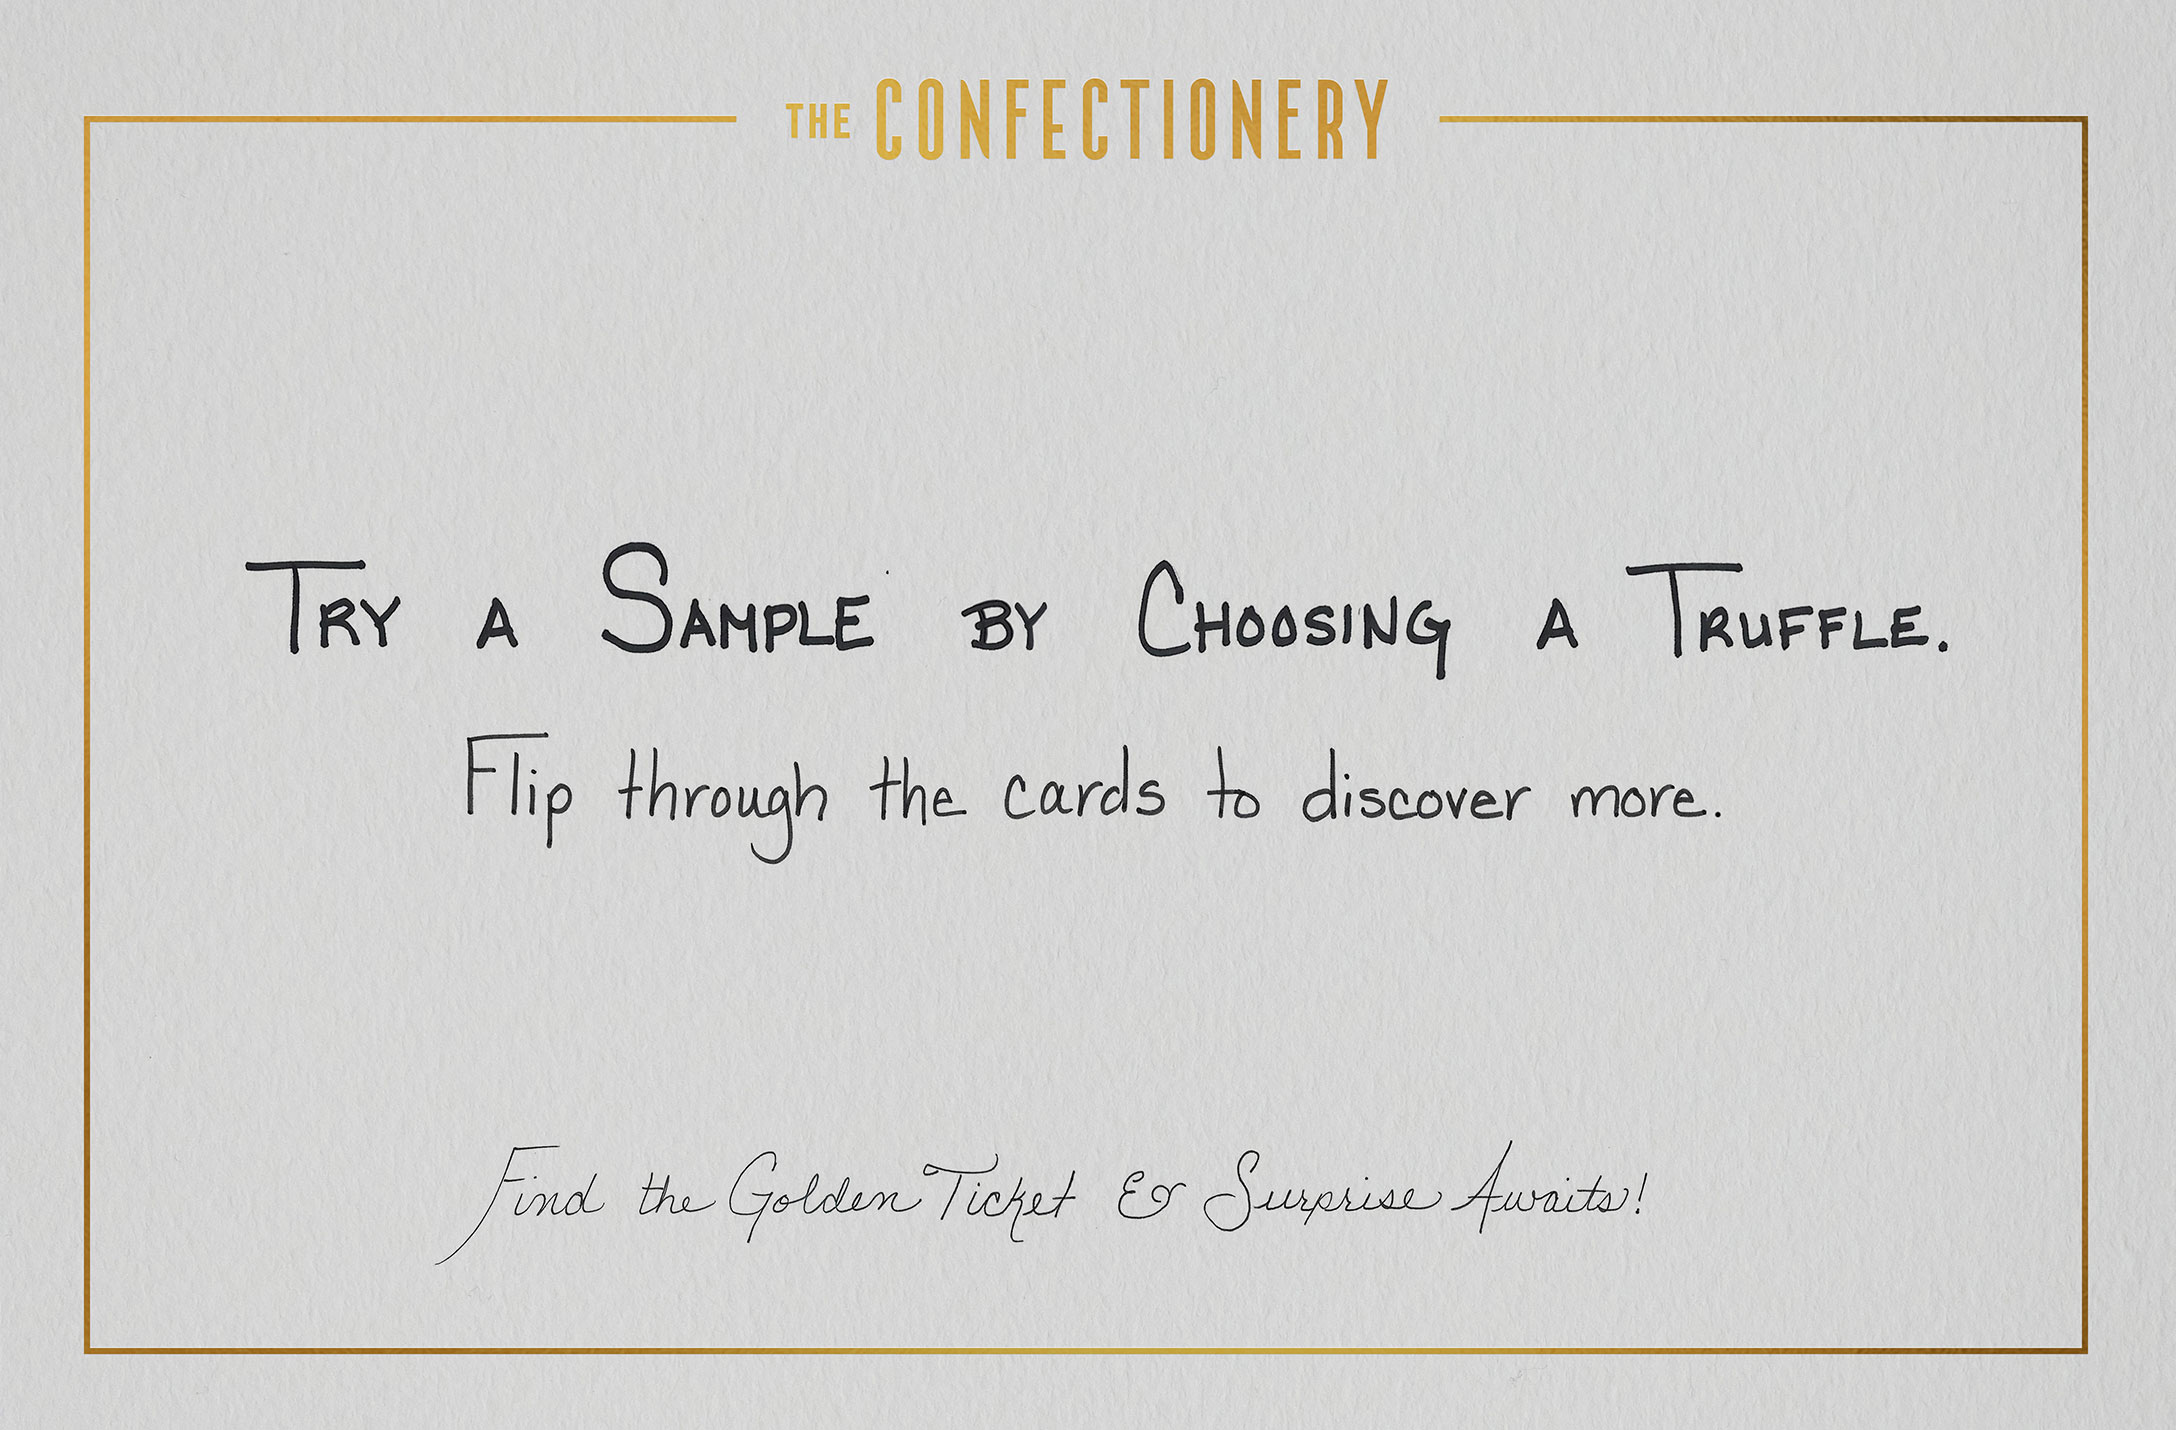 THE CONFECTIONERY
TRY A SAMPLE BY CHOOSING A TRUFFLE.
Flip through the cards to discover more.
Find the Golden Ticket & Surprise Awaits!